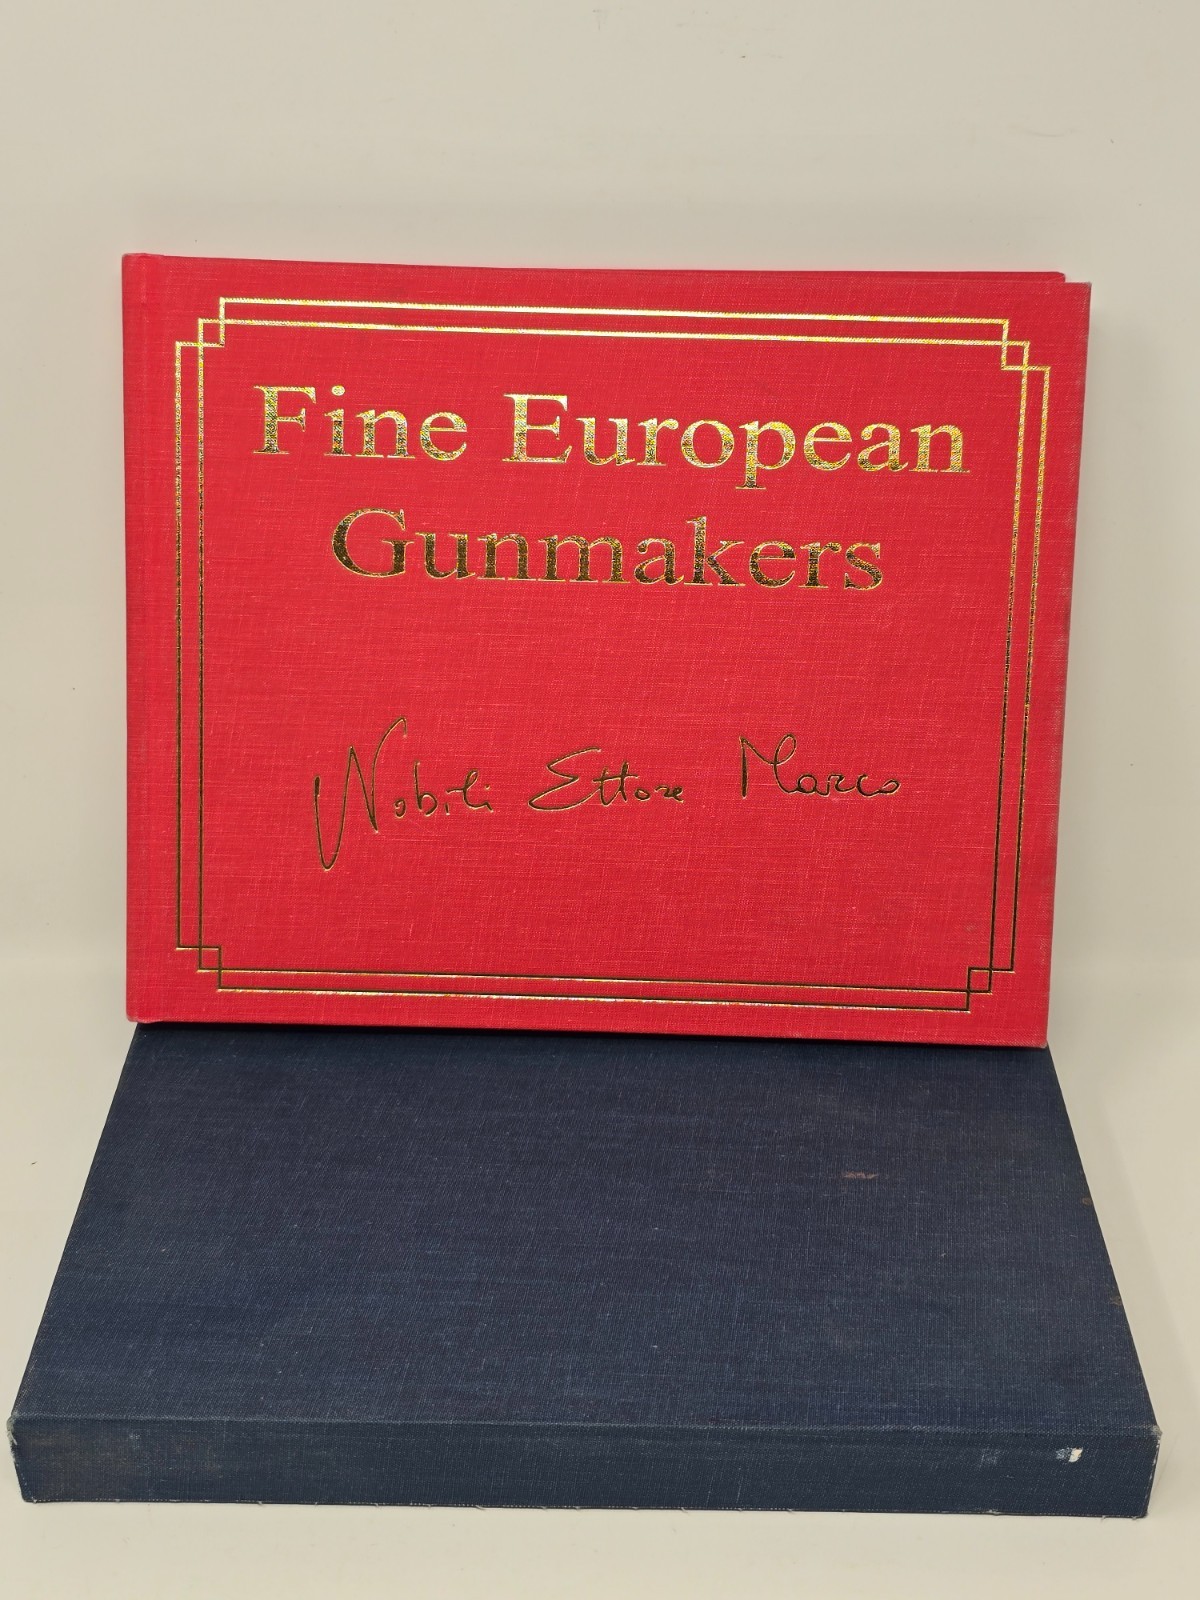 Fine European
Gunmakers
Nobili Ettore Marco